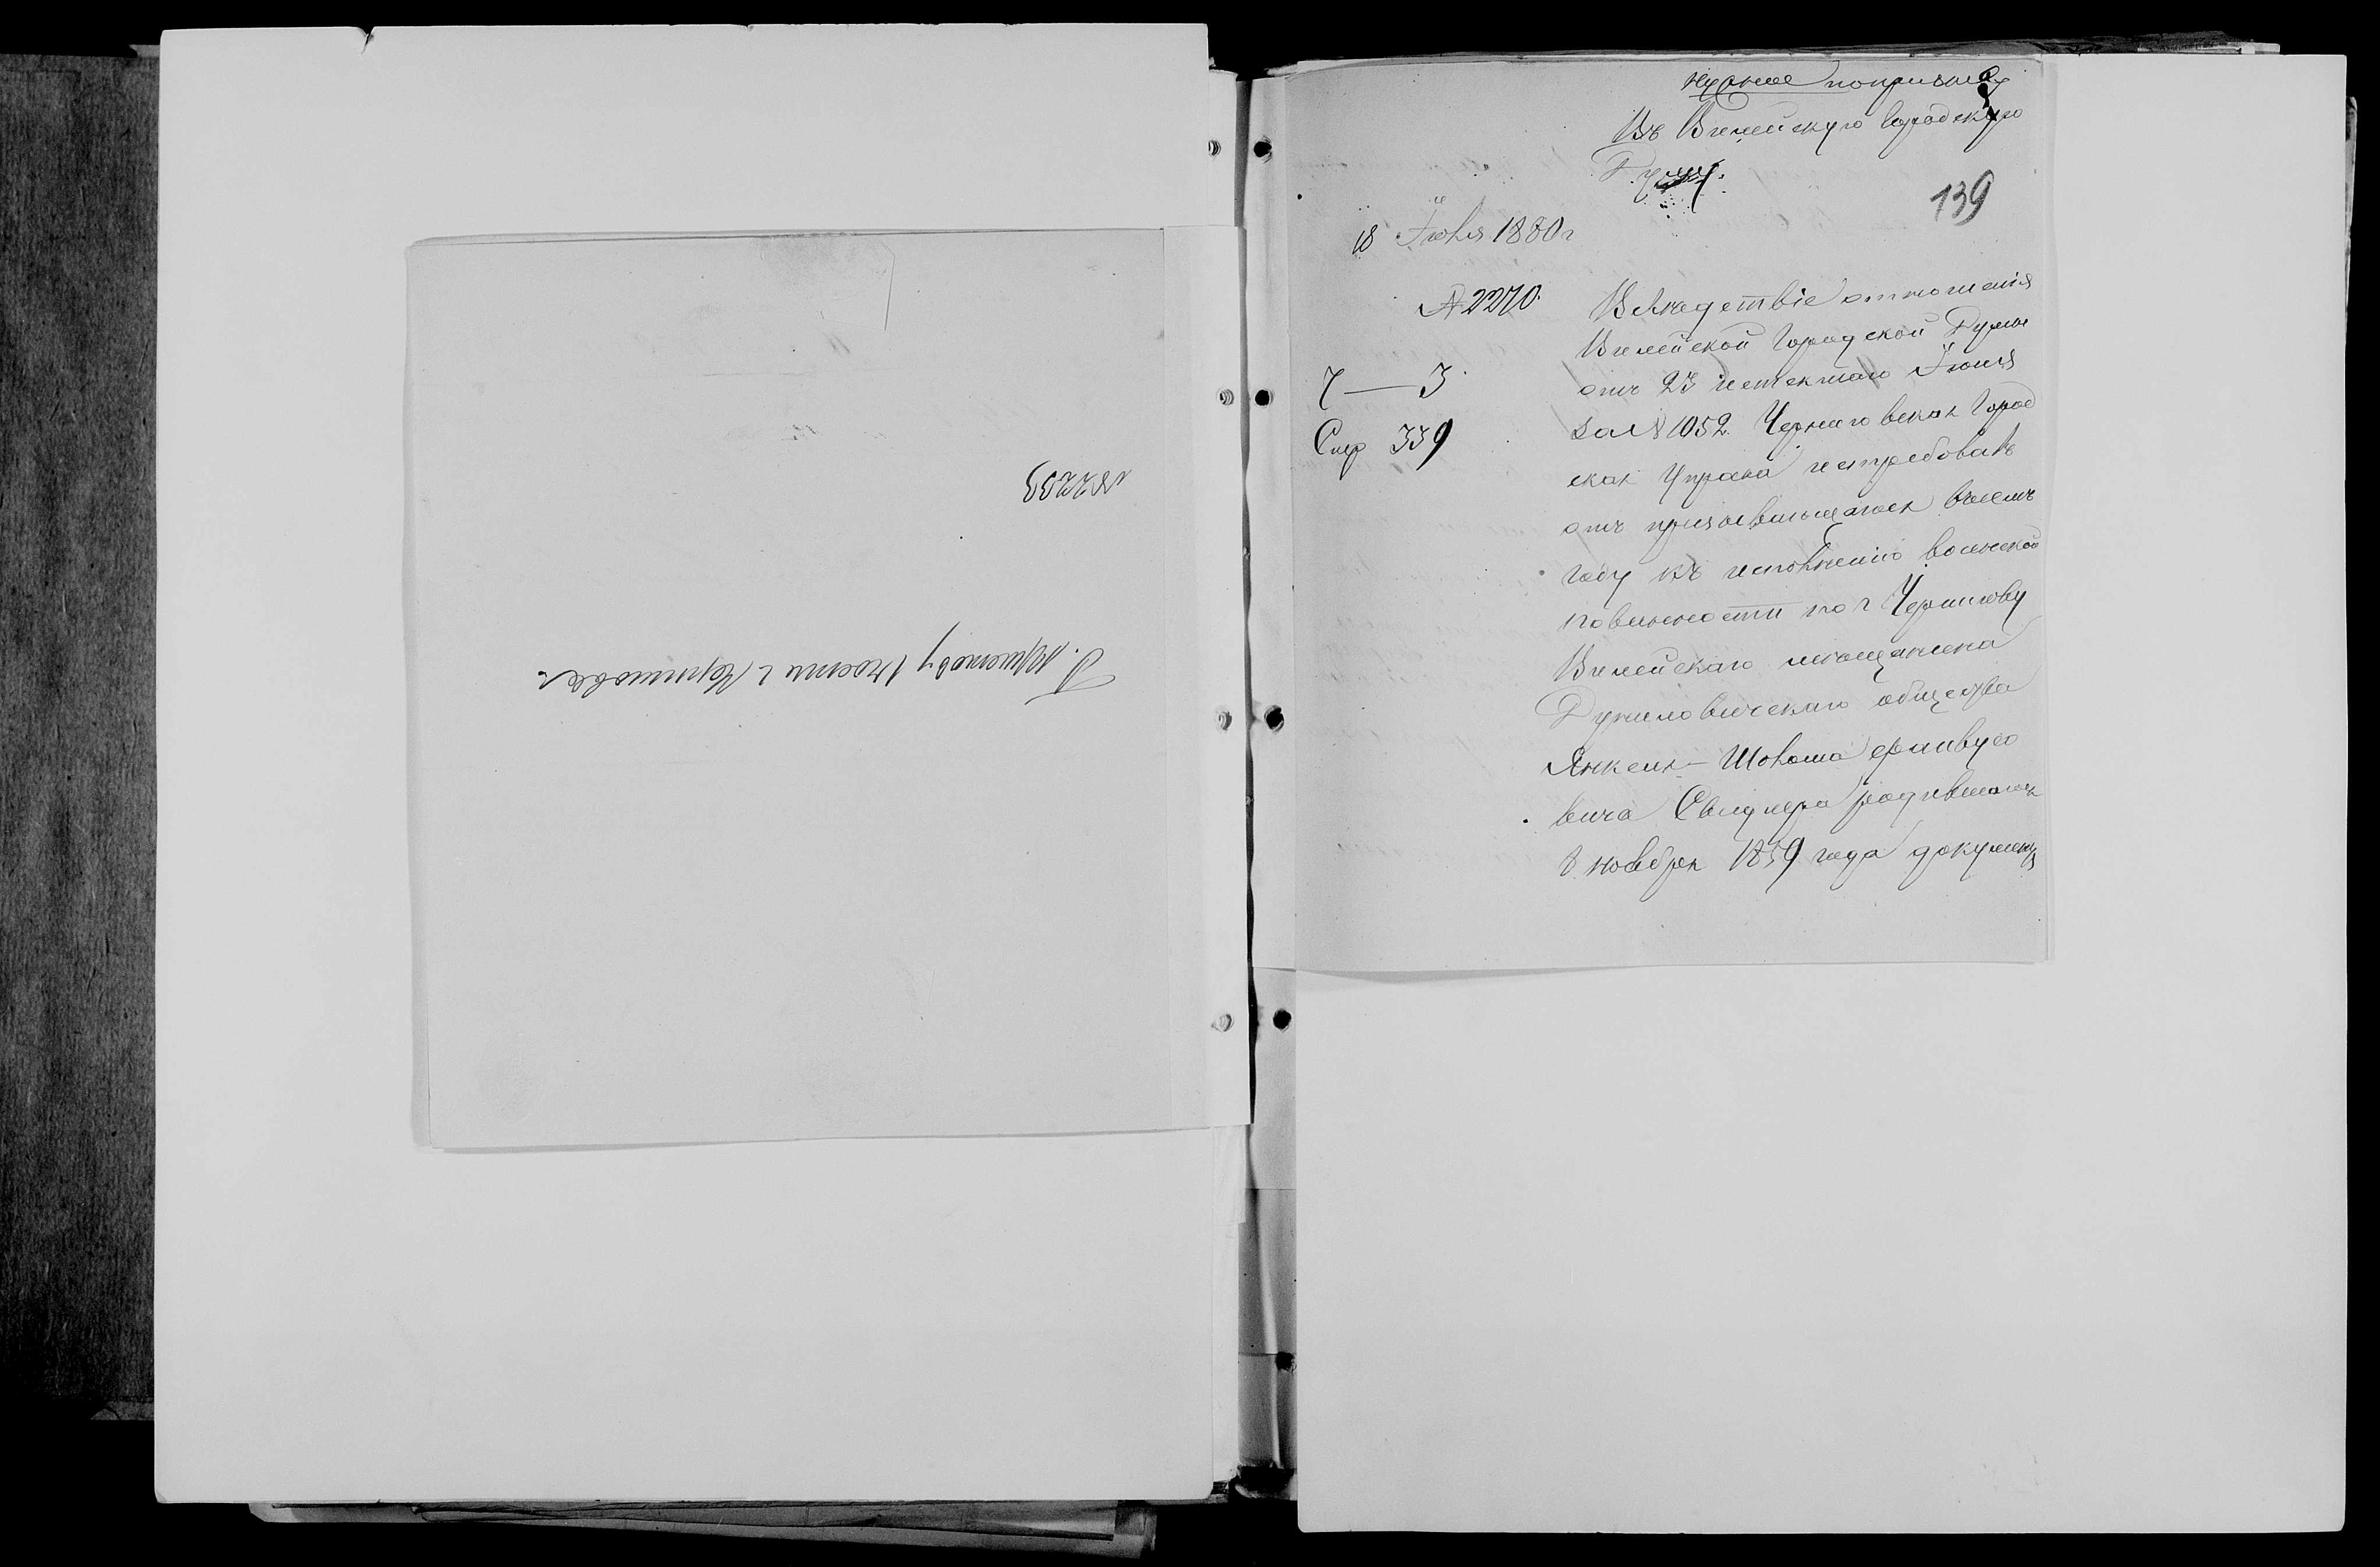 № 2209
Г. Приставу I части г Чернигова
нужное по призыву
Въ Вилейскую Городскую
Думу.
139
18 Іюля 1880 г
№ 2270.
7 — 3
Стр 339
Вслѣдствіе отношенія
Вилейской Городской Думы
отъ 23 истекшаго Іюня
за № 1052 Черниговская Город
ская Управа истребовавъ
отъ призывающагося въ семъ
году къ исполненію воинской
повинности по г Чернигову
Вилейскаго мѣщанина
Дуниловичскаго общества
Янкеля-Шолома
вича родившагося
8 ноября 1859 года документы